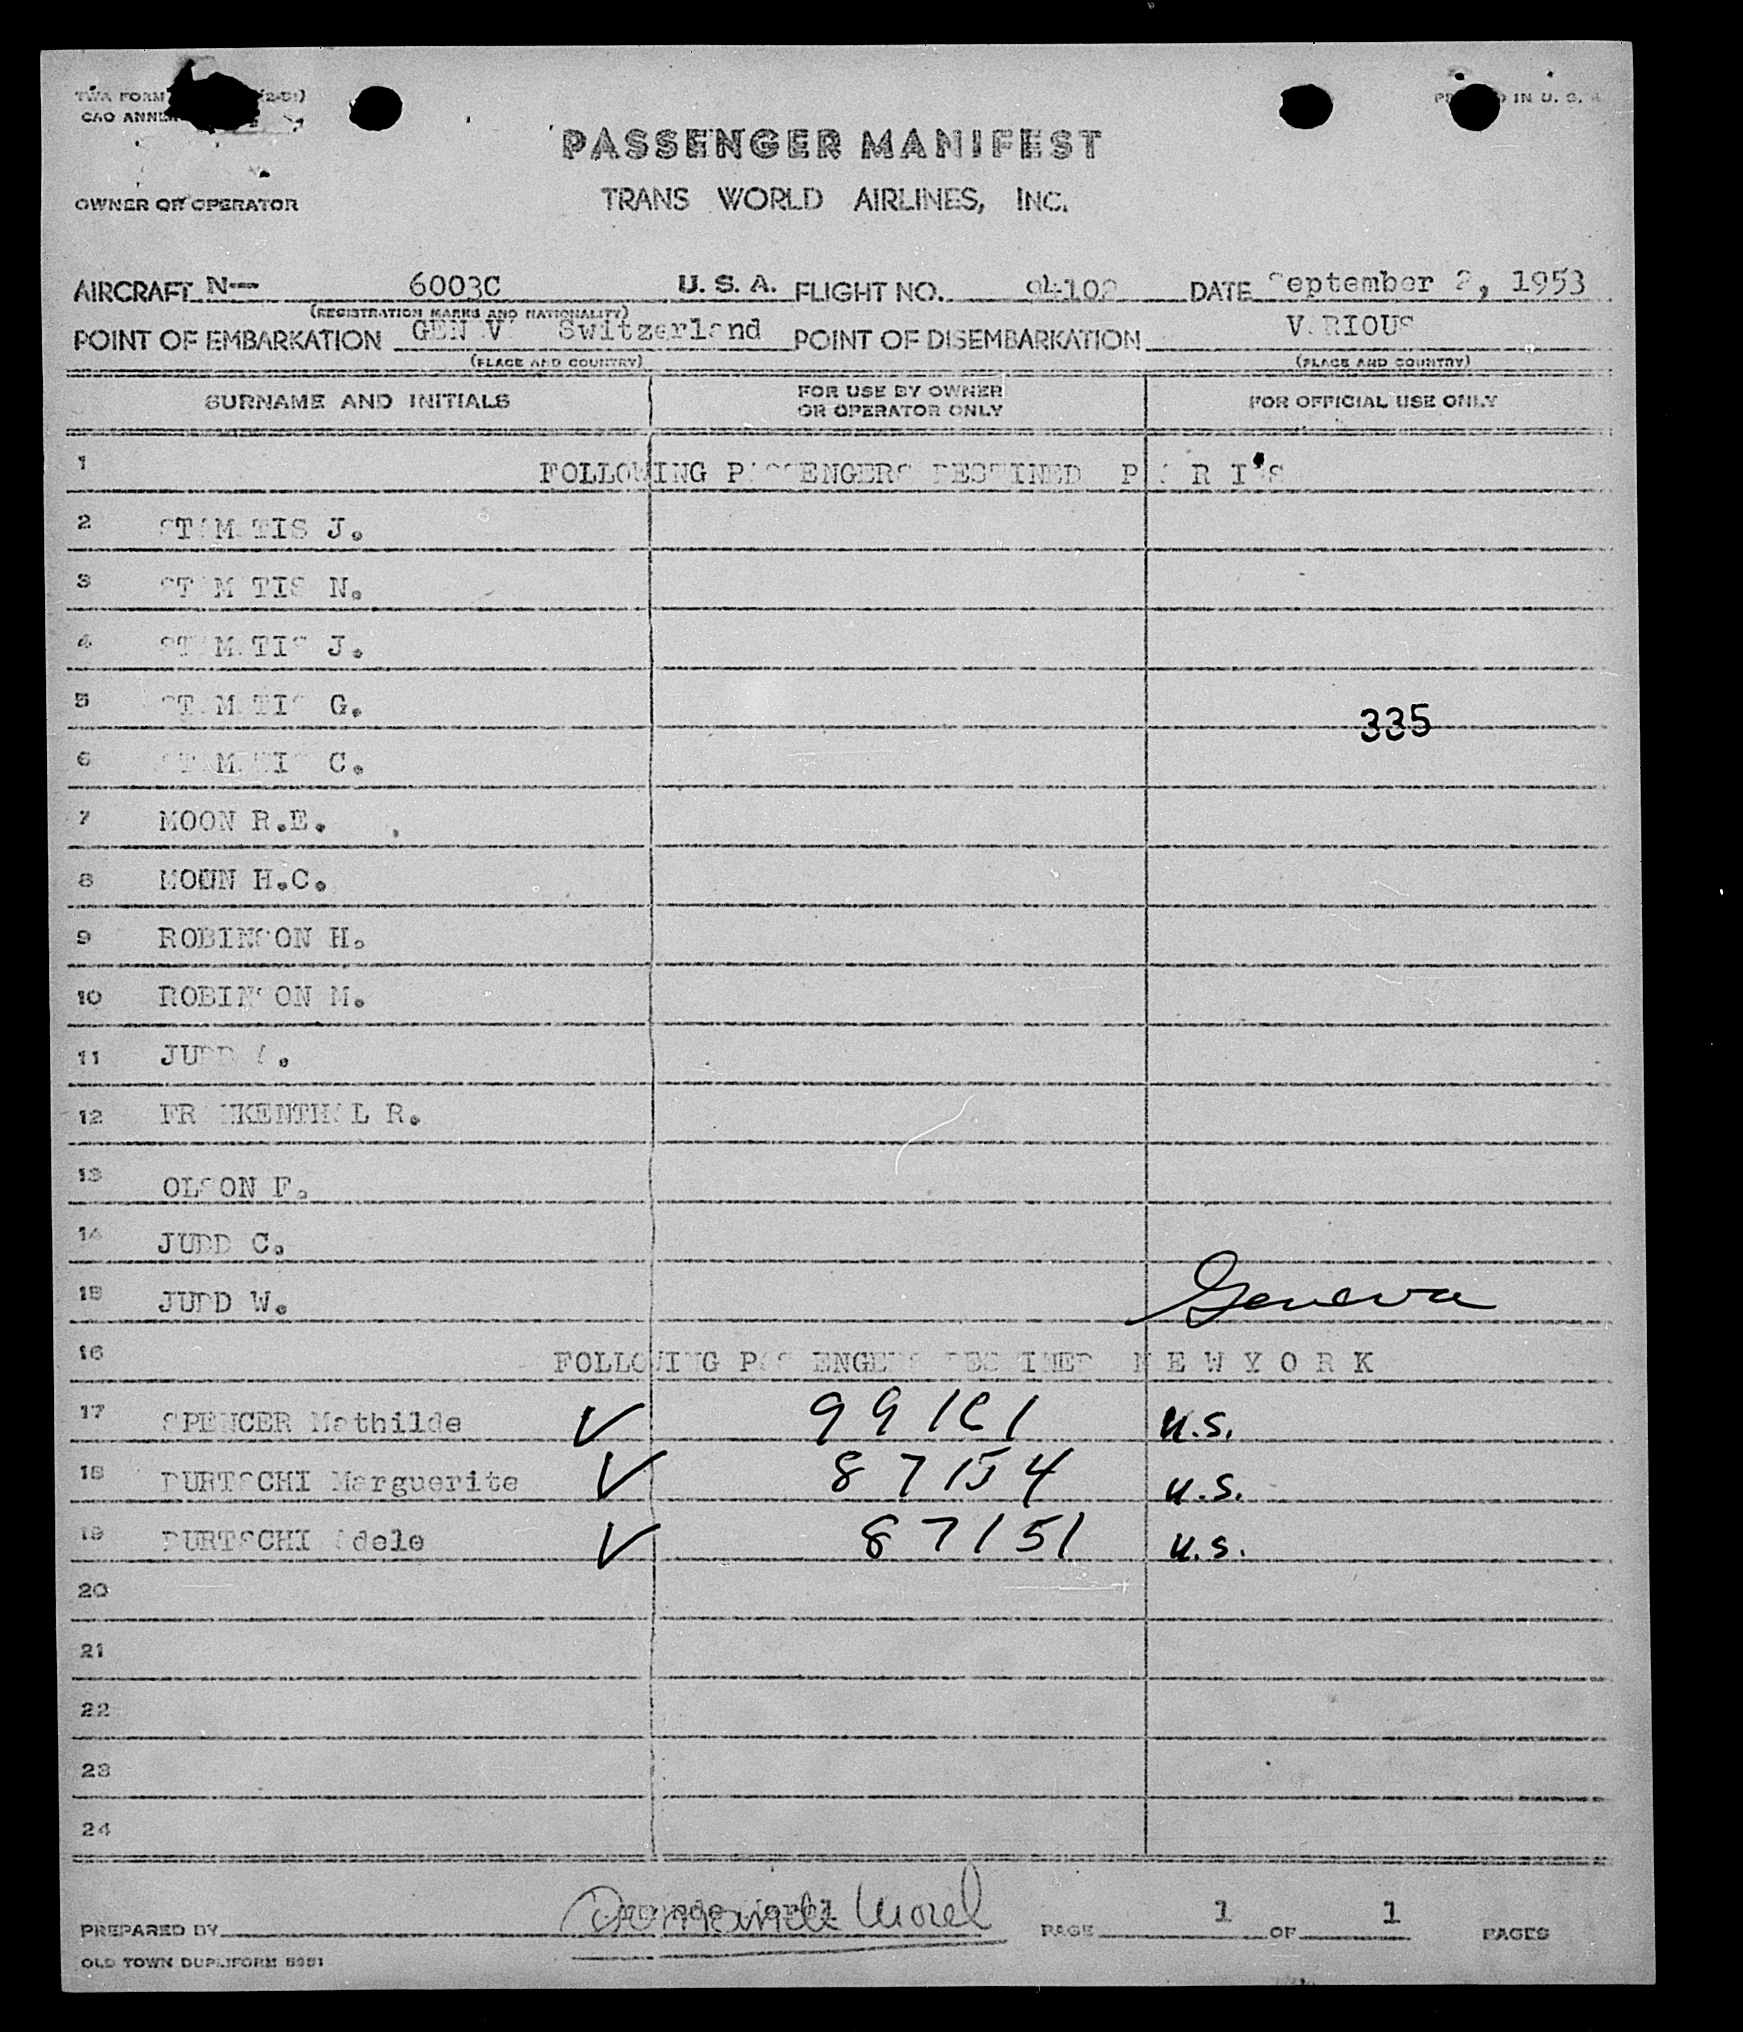 TWA FORM (2-51)
PRINTED IN U. S. A.
CAO ANNEX
PASSENGER MANIFEST
OWNER OR OPERATOR TRANS WORLD AIRLINES, INC.
AIRCRAFT N-- 6003C U. S. A. FLIGHT NO. 94102 DATE September 2, 1953
(REGISTRATION MARKS AND NATIONALITY)
POINT OF EMBARKATION GENEVA Switzerland POINT OF DISEMBARKATION VARIOUS
(PLACE AND COUNTRY) (PLACE AND COUNTRY)
SURNAME AND INITIALS FOR USE BY OWNER OR OPERATOR ONLY FOR OFFICIAL USE ONLY
1 FOLLOWING PASSENGERS DESTINED P A R I S
2 STAMATIS J.
3 STAMATIS N.
4 STAMATIS J.
5 STAMATIS G.
335
6 STAMATIS C.
7 MOON R.E.
8 MOON H.C.
9 ROBINSON H.
10 ROBINSON M.
11 JUDD A.
12 FRANKENTHAL R.
13 OLSON F.
14 JUDD C.
15 JUDD W. Geneva
16 FOLLOWING PASSENGERS DESTINED N E W Y O R K
17 SPENCER Mathilde V 99161 U.S.
18 DURTSCHI Marguerite V 87154 U.S.
19 DURTSCHI Adele V 87151 U.S.
20
21
22
23
24
PREPARED BY Morel PAGE 1 OF 1 PAGES
OLD TOWN DUPLIFORM 5951